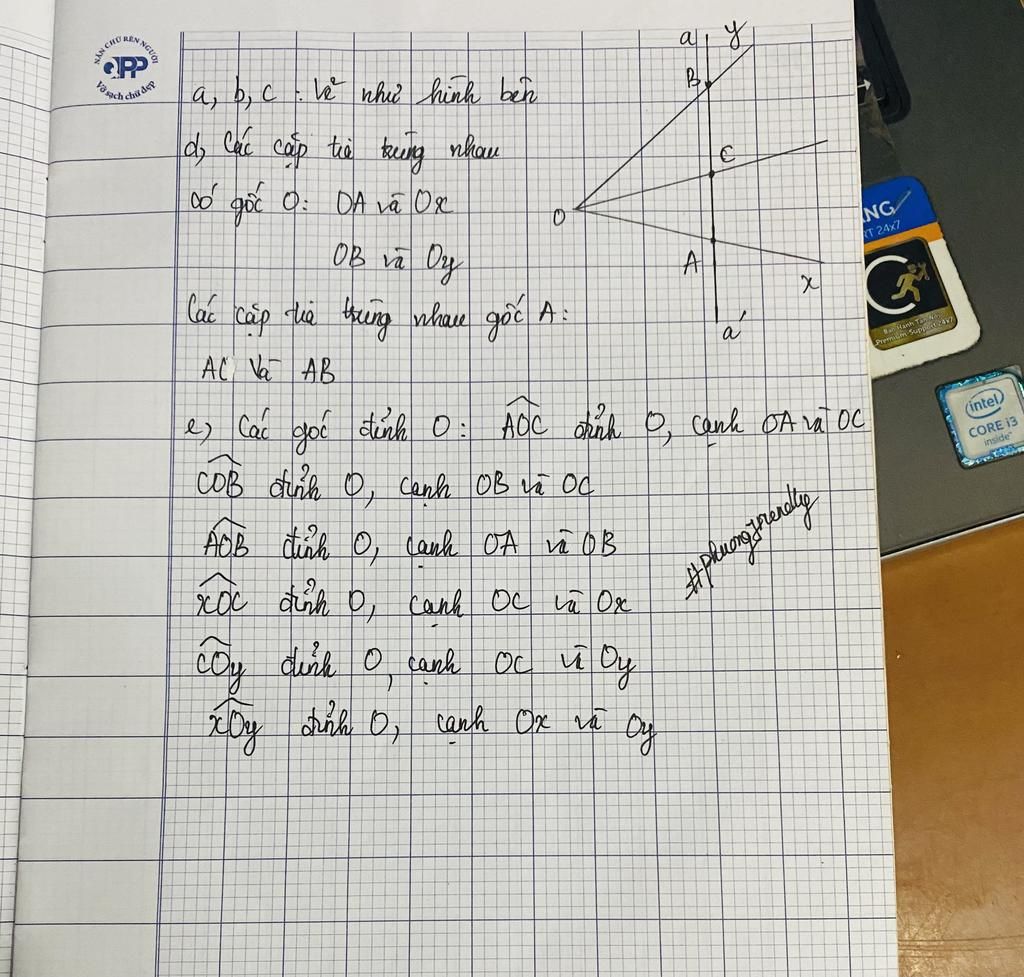 NẮN CHỮ RÈN NGƯỜI
QPP
Vở sạch chữ đẹp
a, b, c : Vẽ như hình bên
d, Các cặp tia trùng nhau
có gốc O: OA và Ox
OB và Oy
Các cặp tia trùng nhau gốc A:
AC và AB
e, Các góc đỉnh O: AOC đỉnh O, cạnh OA và OC
COB đỉnh O, cạnh OB và OC
AOB đỉnh O, cạnh OA và OB
xOC đỉnh O, cạnh OC và Ox
COy đỉnh O, cạnh OC và Oy
xOy đỉnh O, cạnh Ox và Oy
a y
B
C
O
A
x
a'
#phuongfriendly
NG
RT 24x7
Bảo Hành Tận Nơi
Premium Support 24x7
intel
CORE i3
inside